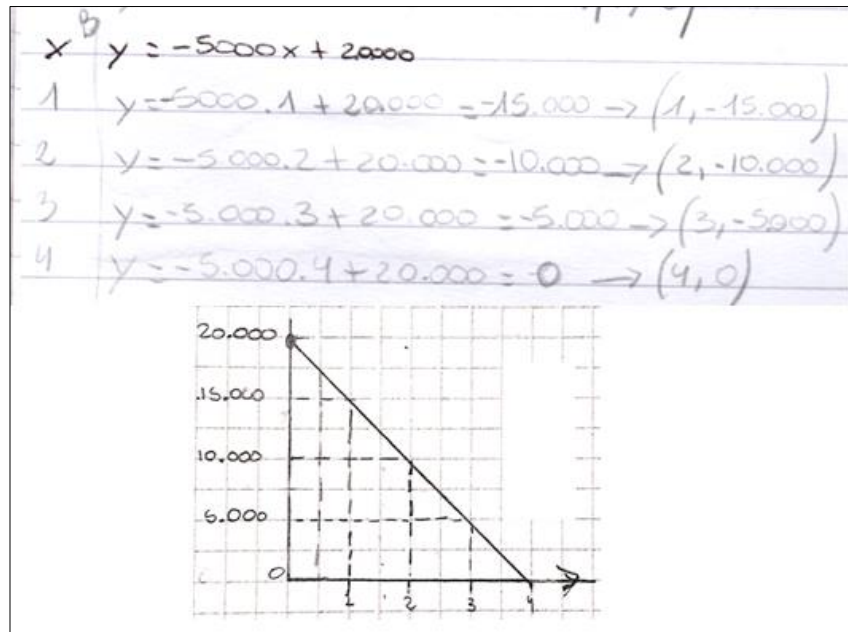 B
x y = -5000x + 20000
1 y=-5000.1 + 20.000 = -15.000 → (1, -15.000)
2 y= -5.000.2 + 20.000 = -10.000 → (2, -10.000)
3 y= -5.000.3 + 20.000 = -5.000 → (3, -5.000)
4 y= -5.000.4 + 20.000 = 0 → (4, 0)
20.000
15.000
10.000
5.000
0
1 2 3 4